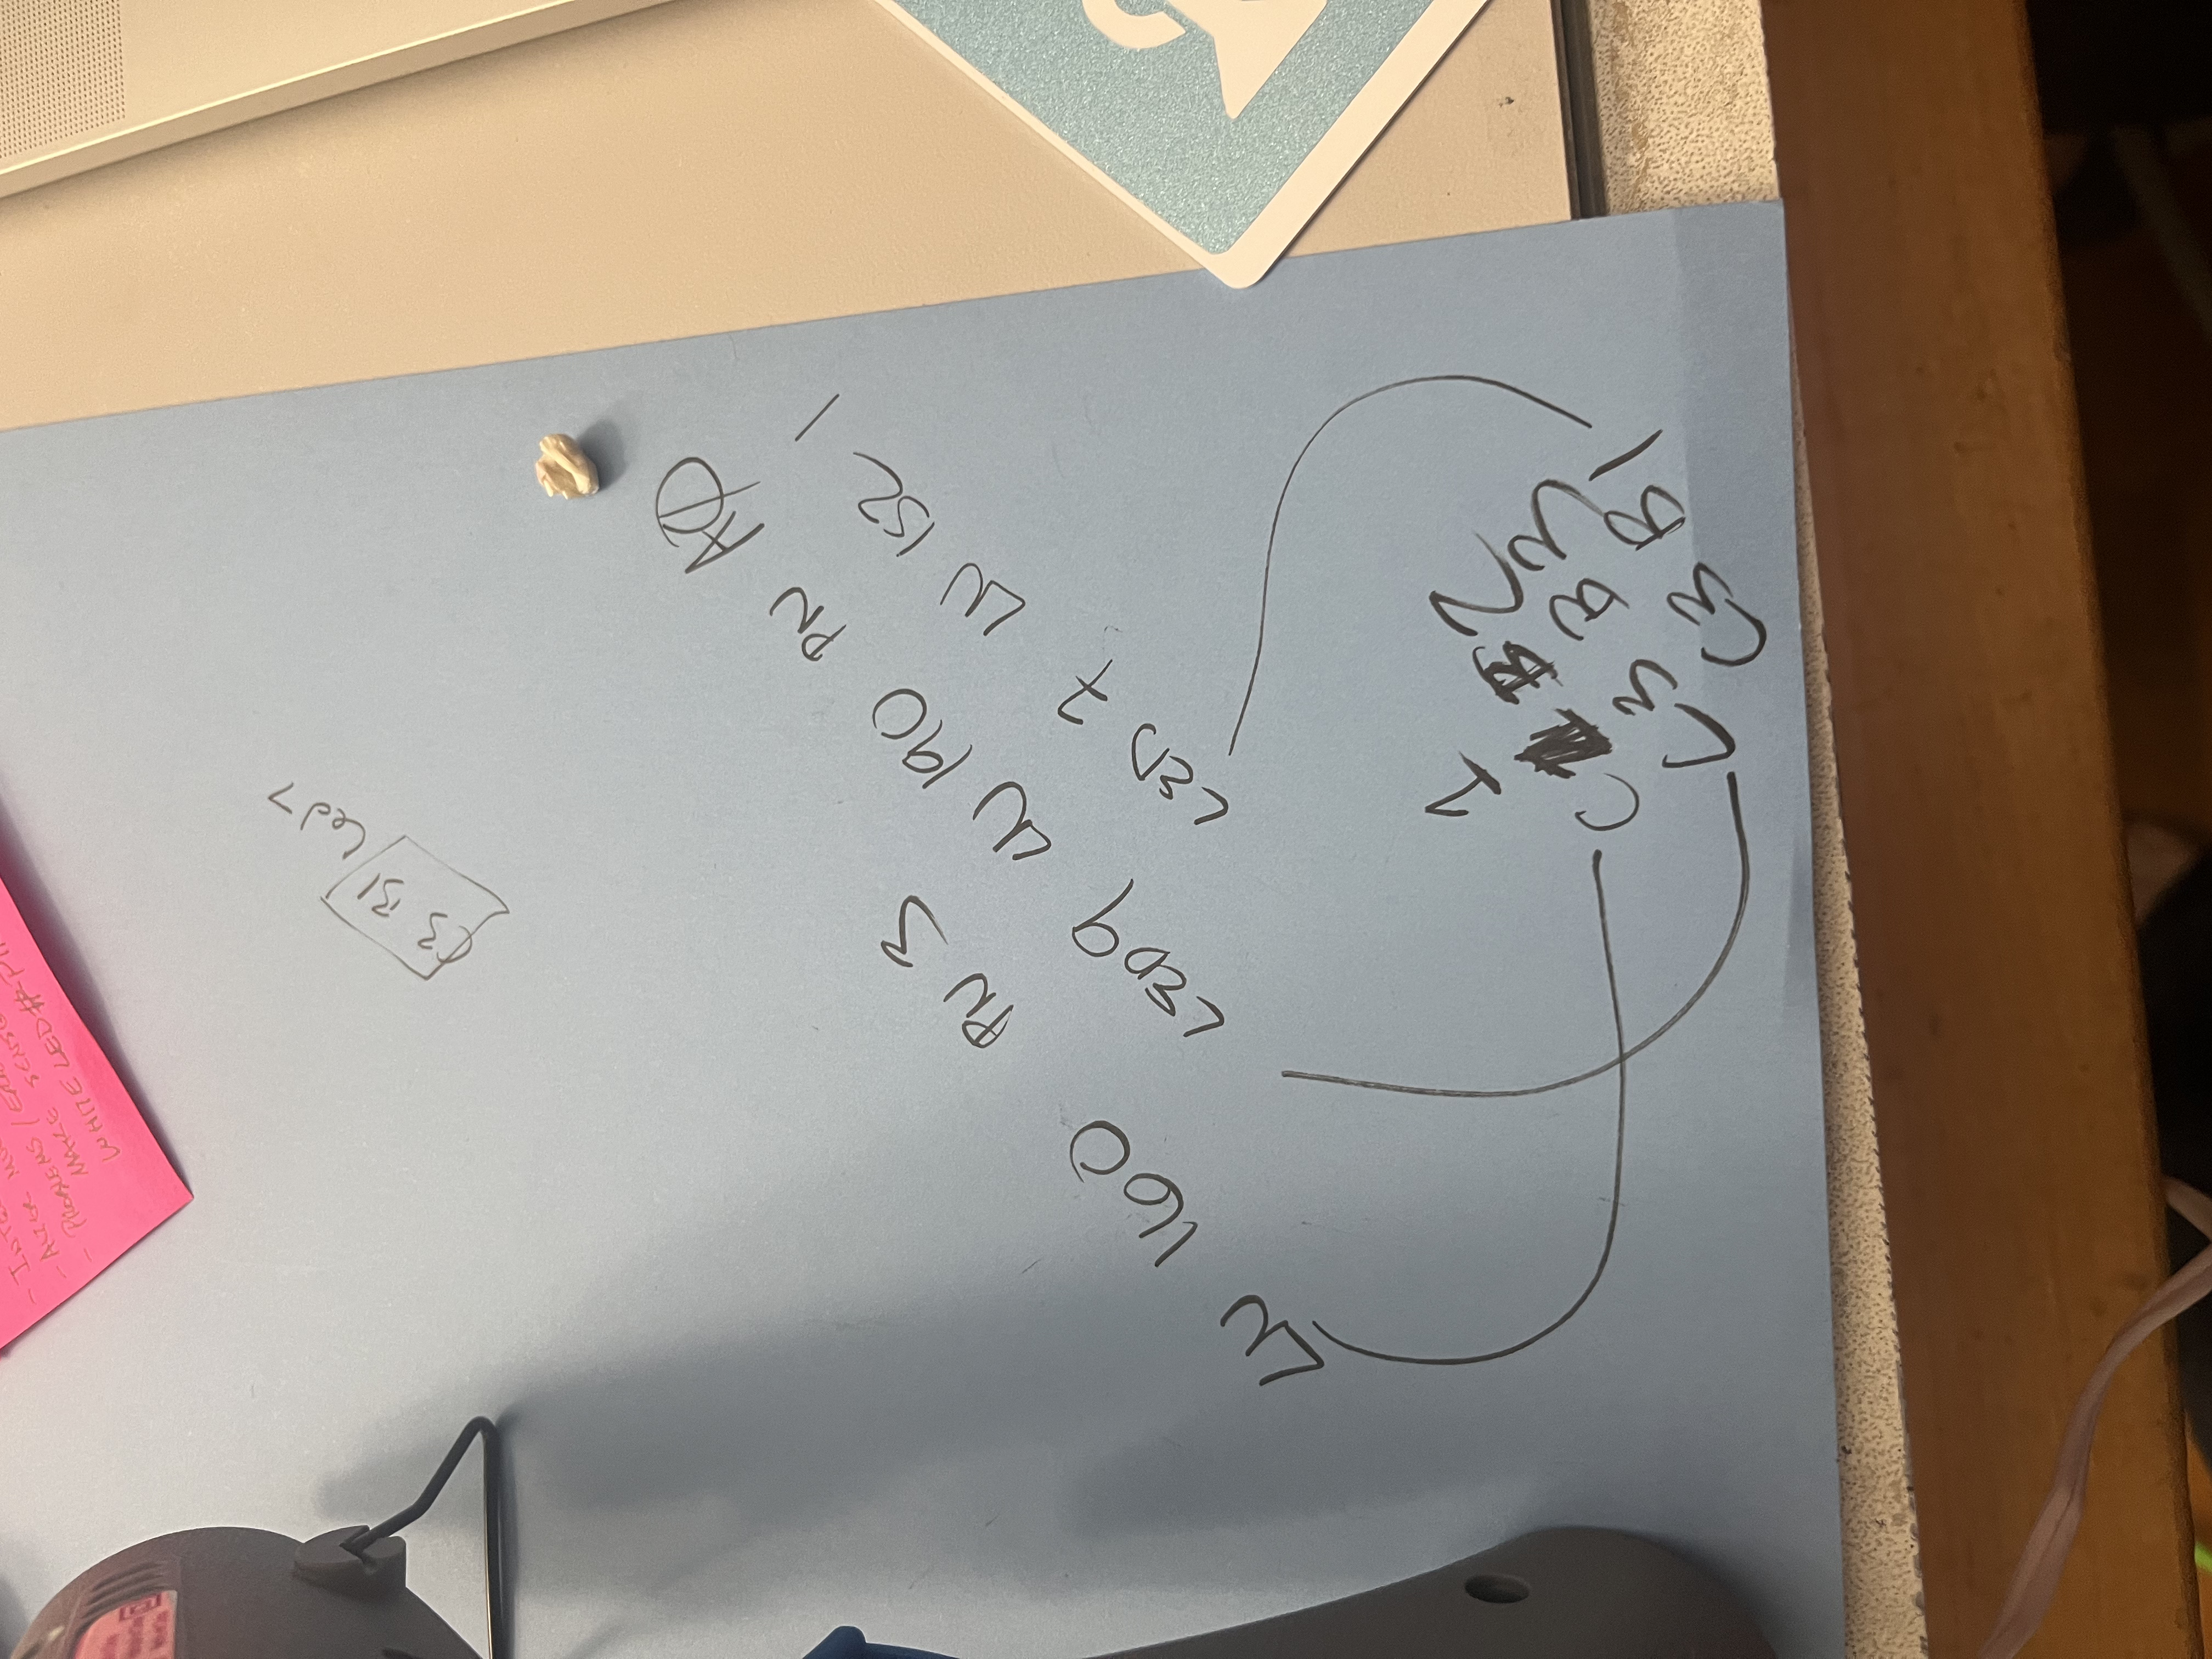 - INTE
- ALTER
- PROBLEMS /
MAKE SENSE
WHITE LED #
C3 B1 Led 7
LN 160 PN 3
LED 9 LN 190 PN AØ
LED 7 LN 152 1
1
C B2
C3 B3
C3 B1